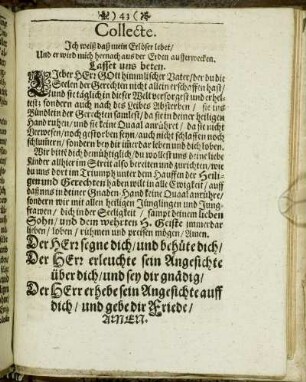 43
Collecte.
Ich weiß daß mein Erlöser lebet/
Und er wird mich hernach aus der Erden aufferwecken.
Lasset uns beten.
LIeber HErr GOtt himmlischer Vater/ der du die
Seelen der Gerechten nicht allein erschaffen hast/
und sie täglich in dieser Welt versorgest und erhel-
test: sondern auch nach des Leibes Absterben / sie ins
Bündlein der Gerechten samlest/ da sie in deiner heiligen
Hand ruhen/ und sie keine Quaal anrühret / da sie nicht
verwesen/ noch gestorben seyn/ auch nicht schlaffen noch
schlum̃ern / sondern bey dir im̃erdar leben und dich loben.
Wir bitte dich demühtiglich/ du wollest uns deine liebe
Kinder allhier im Streit also bereiten und zurichten/ wie
du uns dort im Triumph unter dem Hauffen der Heili-
gen und Gerechten haben wilt in alle Ewigkeit / auff
daß uns in deiner Gnaden-Hand keine Quaal anrühre/
sondern wir mit allen heiligen Jünglingen und Jung-
frauen / dich in der Seeligkeit / sampt deinem lieben
Sohn/ und dem wehrten H. Geiste immerdar
lieben / loben / rühmen und preisen mögen/ Amen.
Der HErr segne dich/ und behüte dich/
Der HErr erleuchte sein Angesichte
über dich/ und sey dir gnädig/
Der HErr erhebe sein Angesichte auff
dich / und gebe dir Friede/
AMEN.